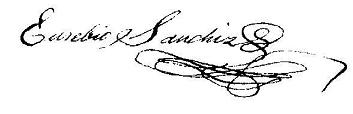 Eusebio Sanchiz